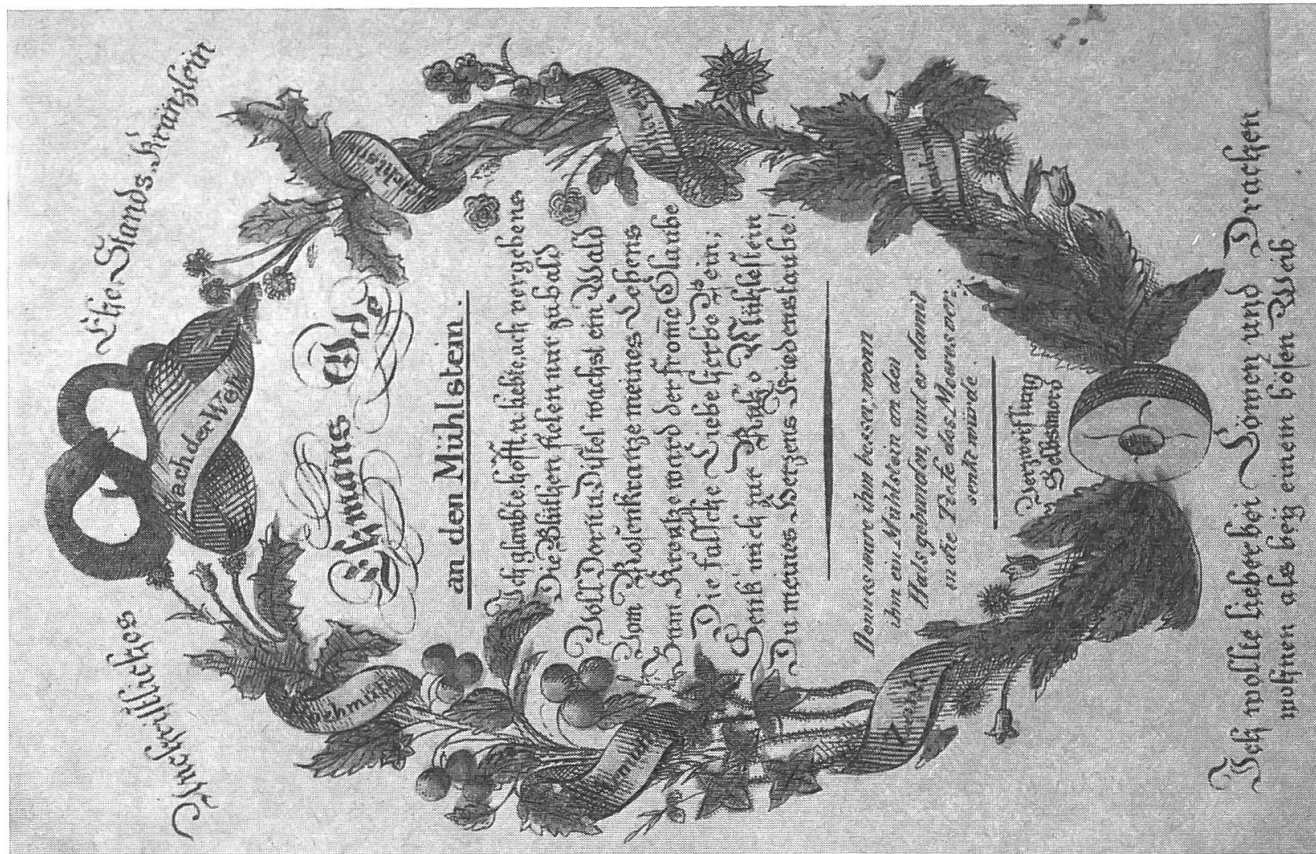 Unchristliches Ehe-Stands-Kränzlein
Nach der Welt
Ehmans Ode
an den Mühlstein.
Ich glaubte, hofft u: liebte, ach vergebens
Die Blüthen fielen nur zu bald
Voll Dorn u Distel wachst ein Wald
Vom Rosenkranze meines Lebens
Zum Kreutze ward der from̄e Glaube
Die falsche Liebe herbe Pein;
Senk mich zur Ruh, o Mühlestein
Du meines Herzens Friedenstaube!
Denn es wäre ihm besser, wenn
ihm ein Mühlstein an den
Hals gebunden, und er damit
in die Tiefe des Meeres ver-
senkt würde.
Verzweiflung
Selbsmord
Ich wollte lieber bei Löwen und Drachen
wohnen als beÿ einem bösen Weib